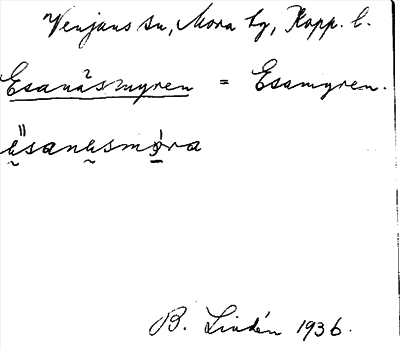 Venjans sn, Mora tg, Kopp. l.
Esanäsmyren = Esamyren.
B. Lindén 1936.